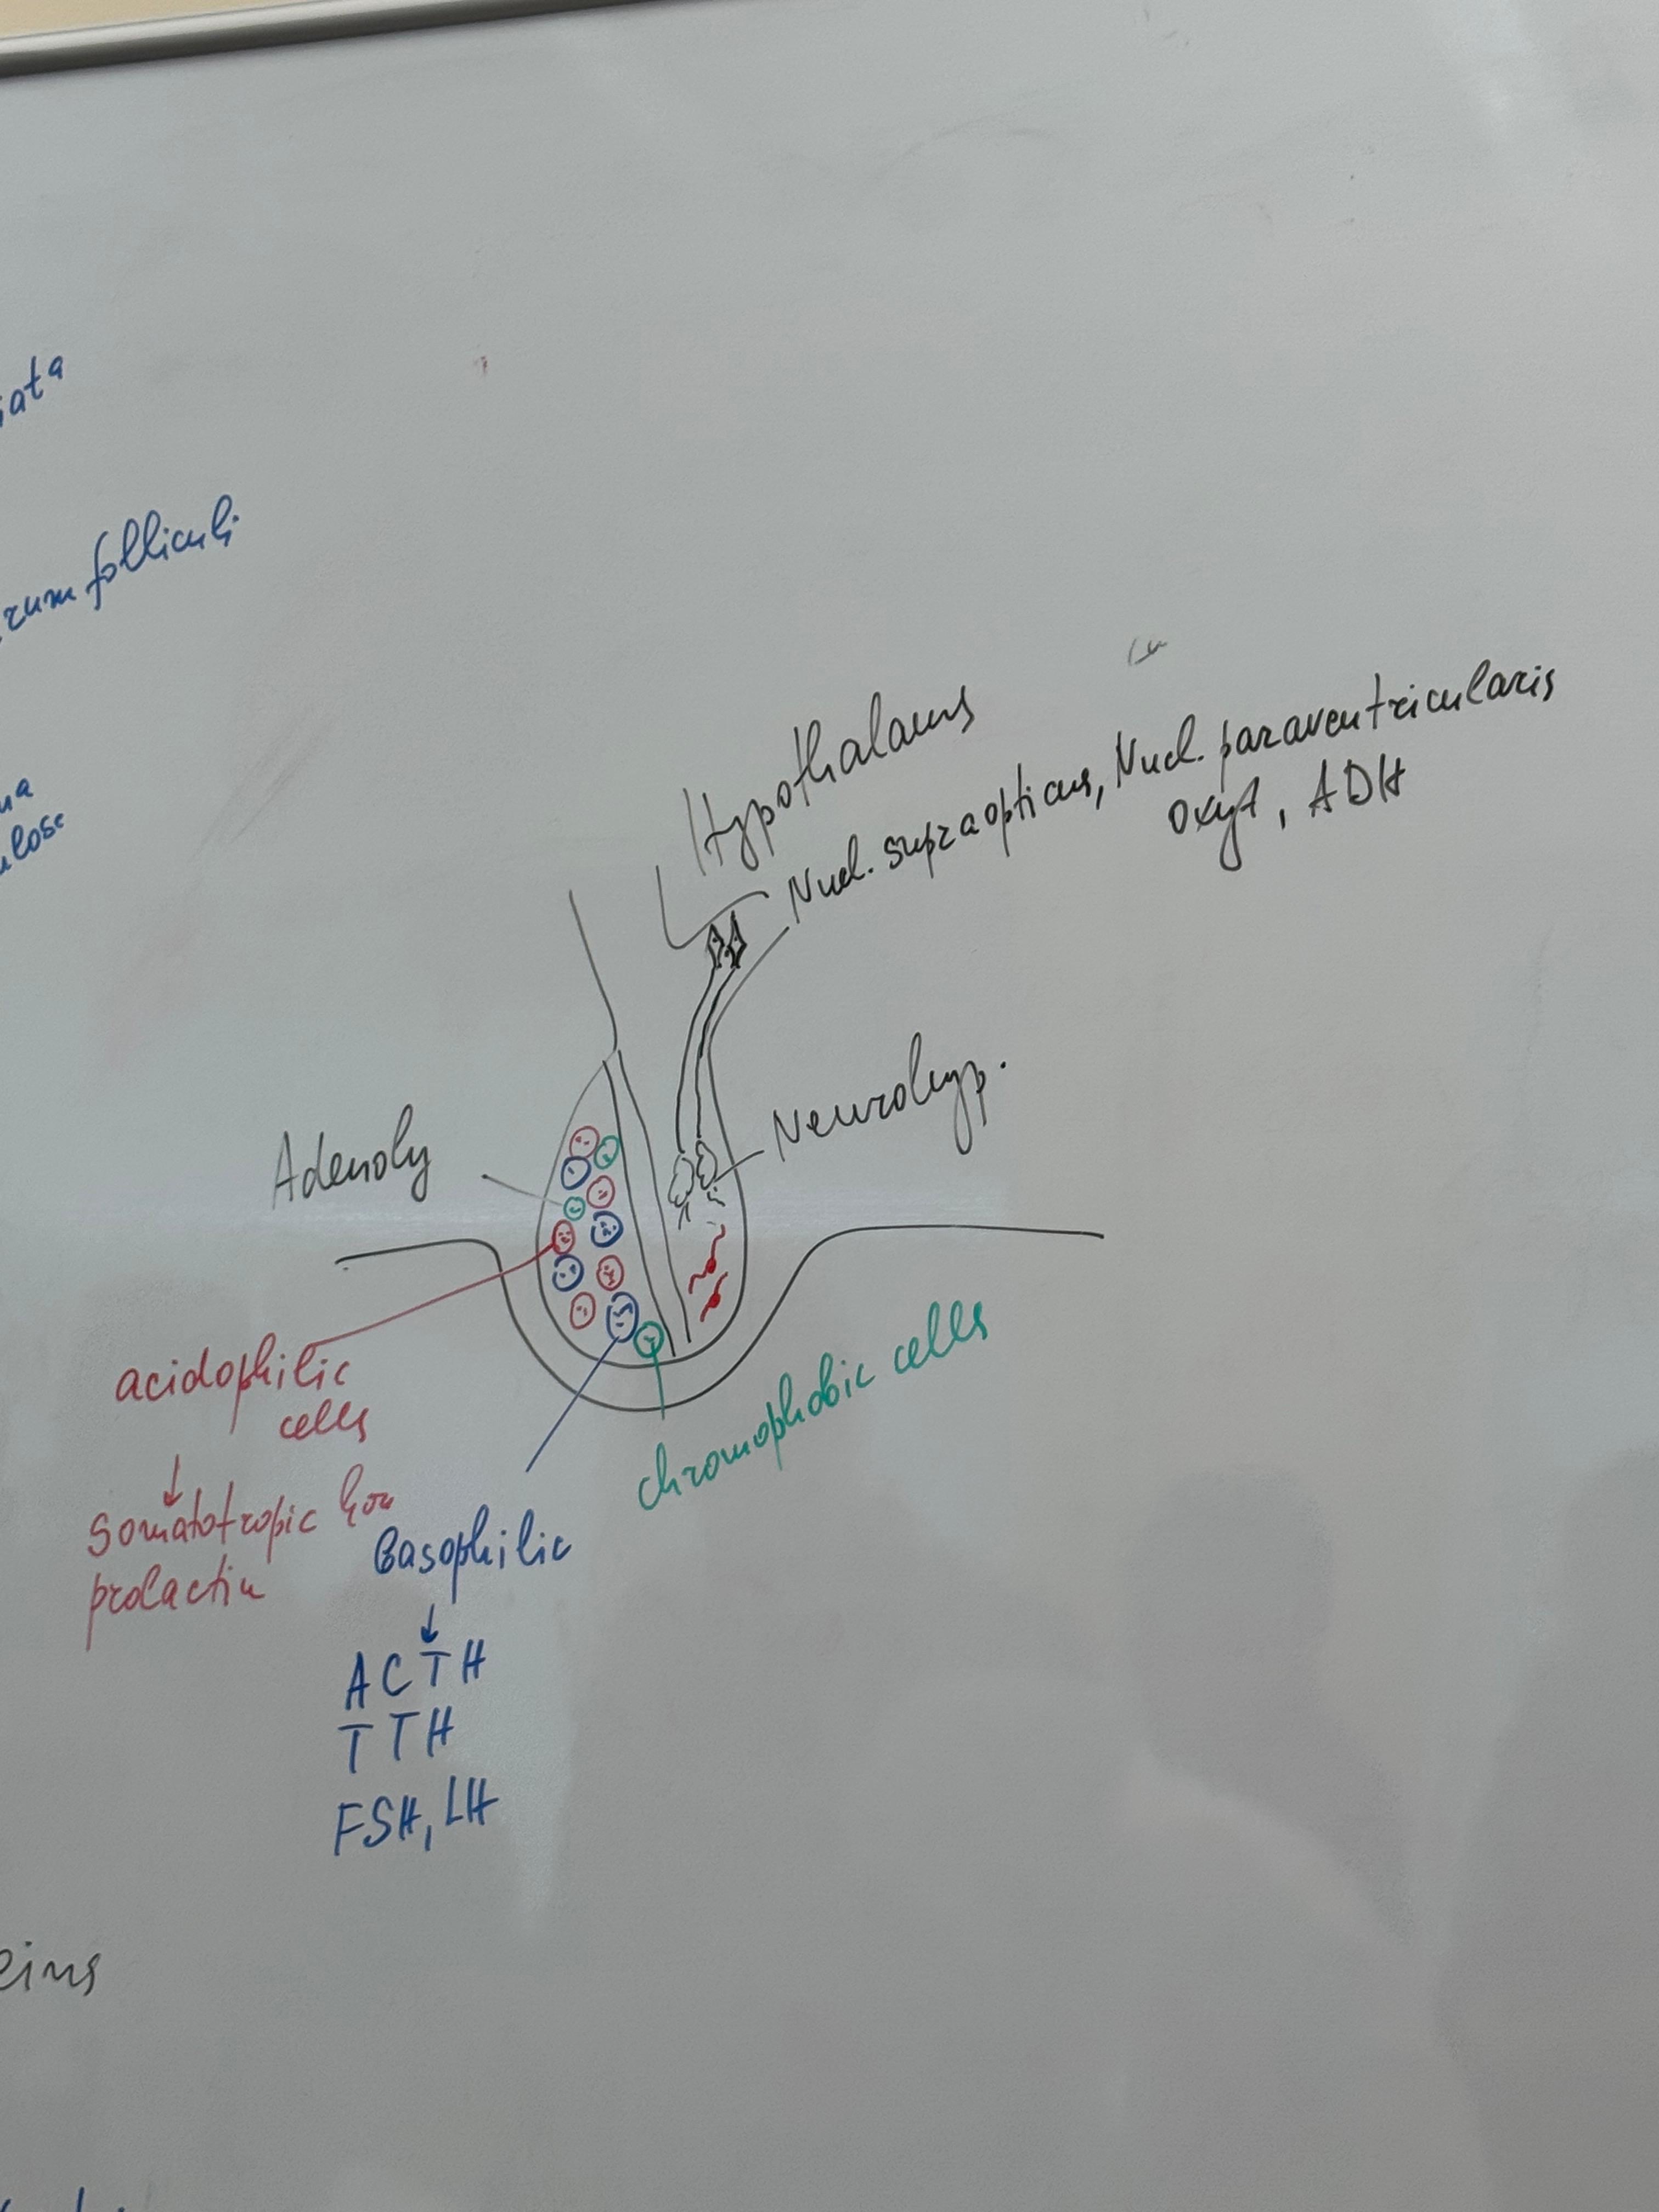 folliculi
Hypothalamus
Nucl. supraopticus, Nucl. paraventricularis
oxyt, ADH
Neurohyp.
Adenohy
acidophilic
cells
somatotropic hor
prolactin
basophilic
ACTH
TTH
FSH, LH
chromophobic cells